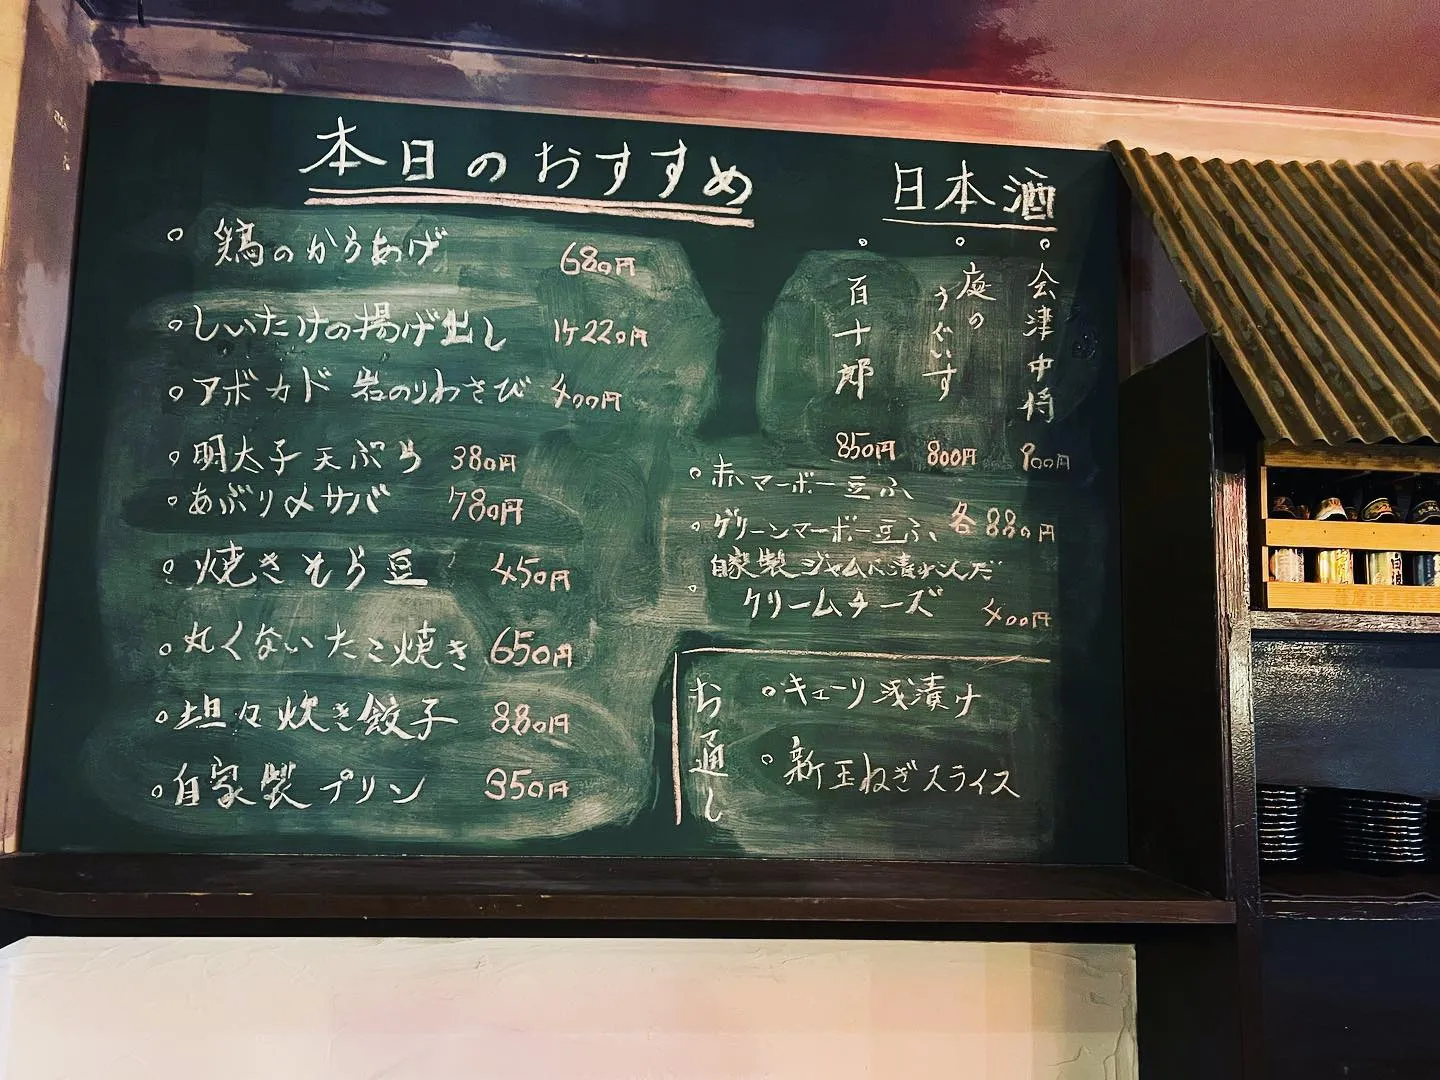 本日のおすすめ
。鶏のからあげ 680円
。しいたけの揚げ出し 1ケ220円
。アボカド岩のりわさび 400円
。明太子天ぷら 380円
。あぶり〆サバ 780円
。焼きそら豆 450円
。丸くないたこ焼き 650円
。坦々炊き餃子 880円
。自家製プリン 350円
日本酒
。会津中将 900円
。庭のうぐいす 800円
。百十郎 850円
。赤マーボー豆ふ
。グリーンマーボー豆ふ 各880円
。自家製ジャムに漬けこんだ
クリームチーズ 400円
お通し
。キューリ浅漬け
。新玉ねぎスライス